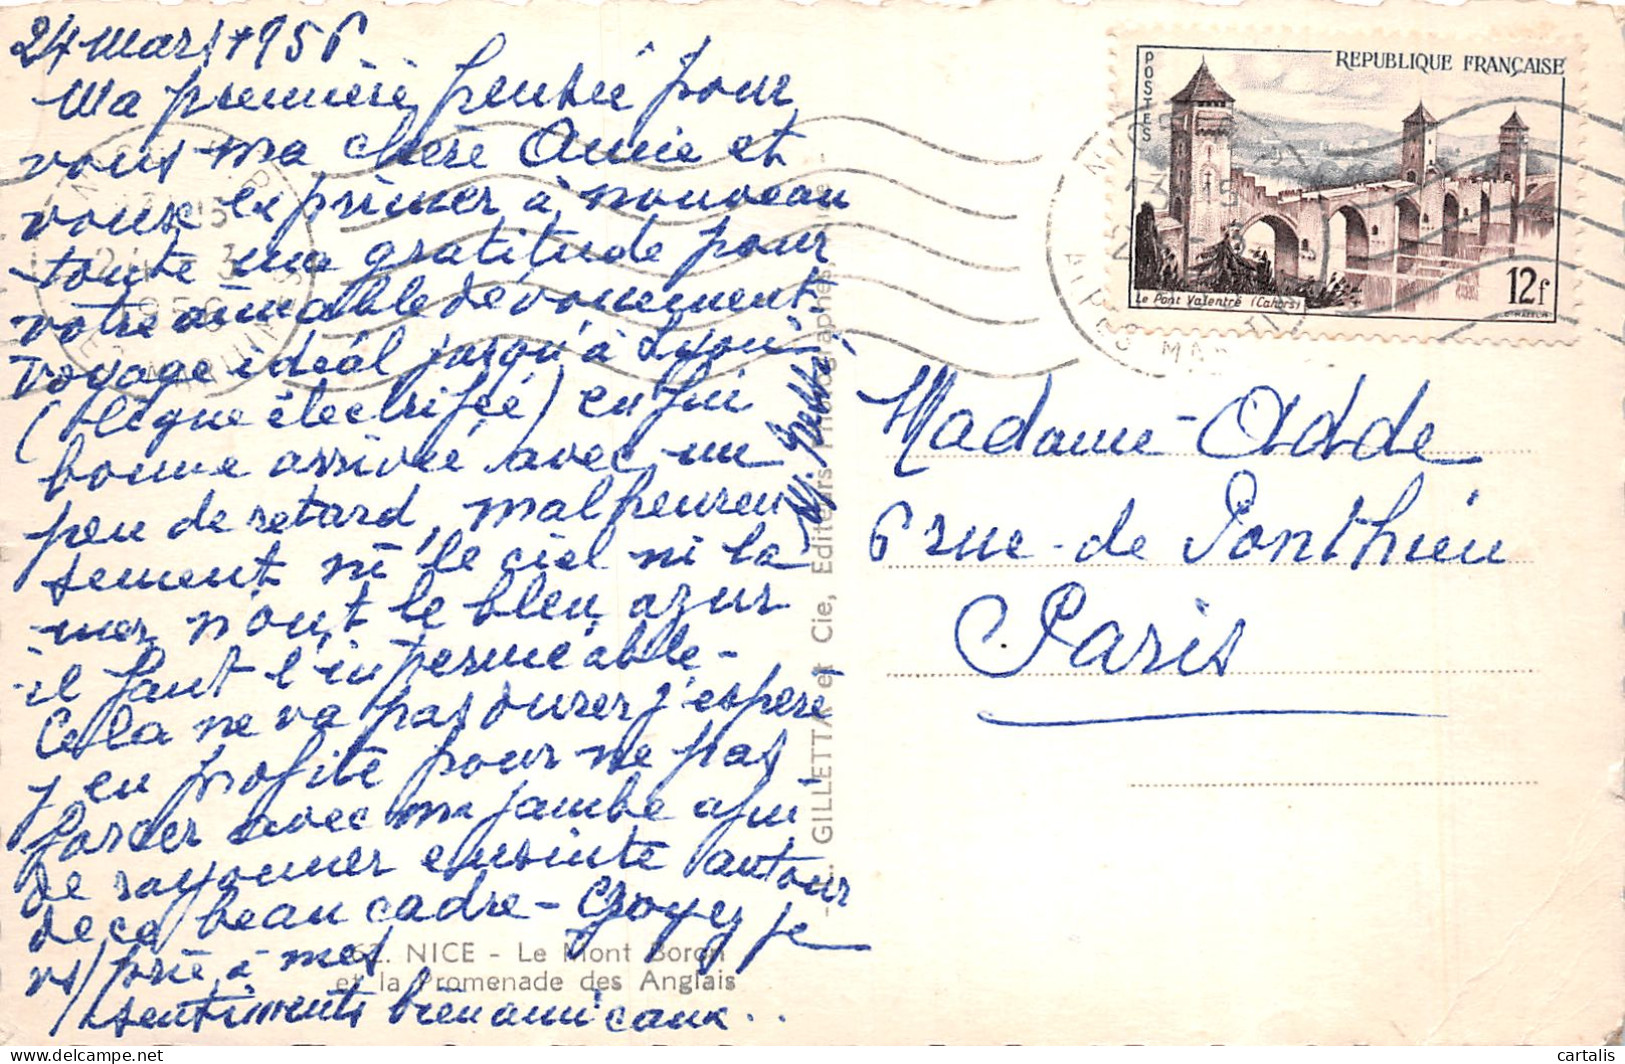 24 mars 1956
Ma première pensée pour
vous ma chère Amie et
vous exprimer à nouveau
toute ma gratitude pour
votre aimable dévouement.
Voyage idéal jusqu'à Lyon
(ligne électrifiée) enfin
bonne arrivée avec un
peu de retard, malheureu
sement ni le ciel ni la
mer n'ont le bleu azur
il faut l'imperméable -
Cela ne va pas durer j'espère
j'en profite pour ne pas
forcer avec ma jambe afin
de rayonner ensuite autour
de ce beau cadre - Croyez je
vs/prie à mes
sentiments bien amicaux..
62. NICE - Le Mont Boron
et la Promenade des Anglais
GILLETTA et Cie, Editeurs Photographes
REPUBLIQUE FRANÇAISE
POSTES
Le Pont Valentré (Cahors)
12f
NICE
ALPES MARITIMES
Madame Odde
6 rue de Ponthieu
Paris
cartalis